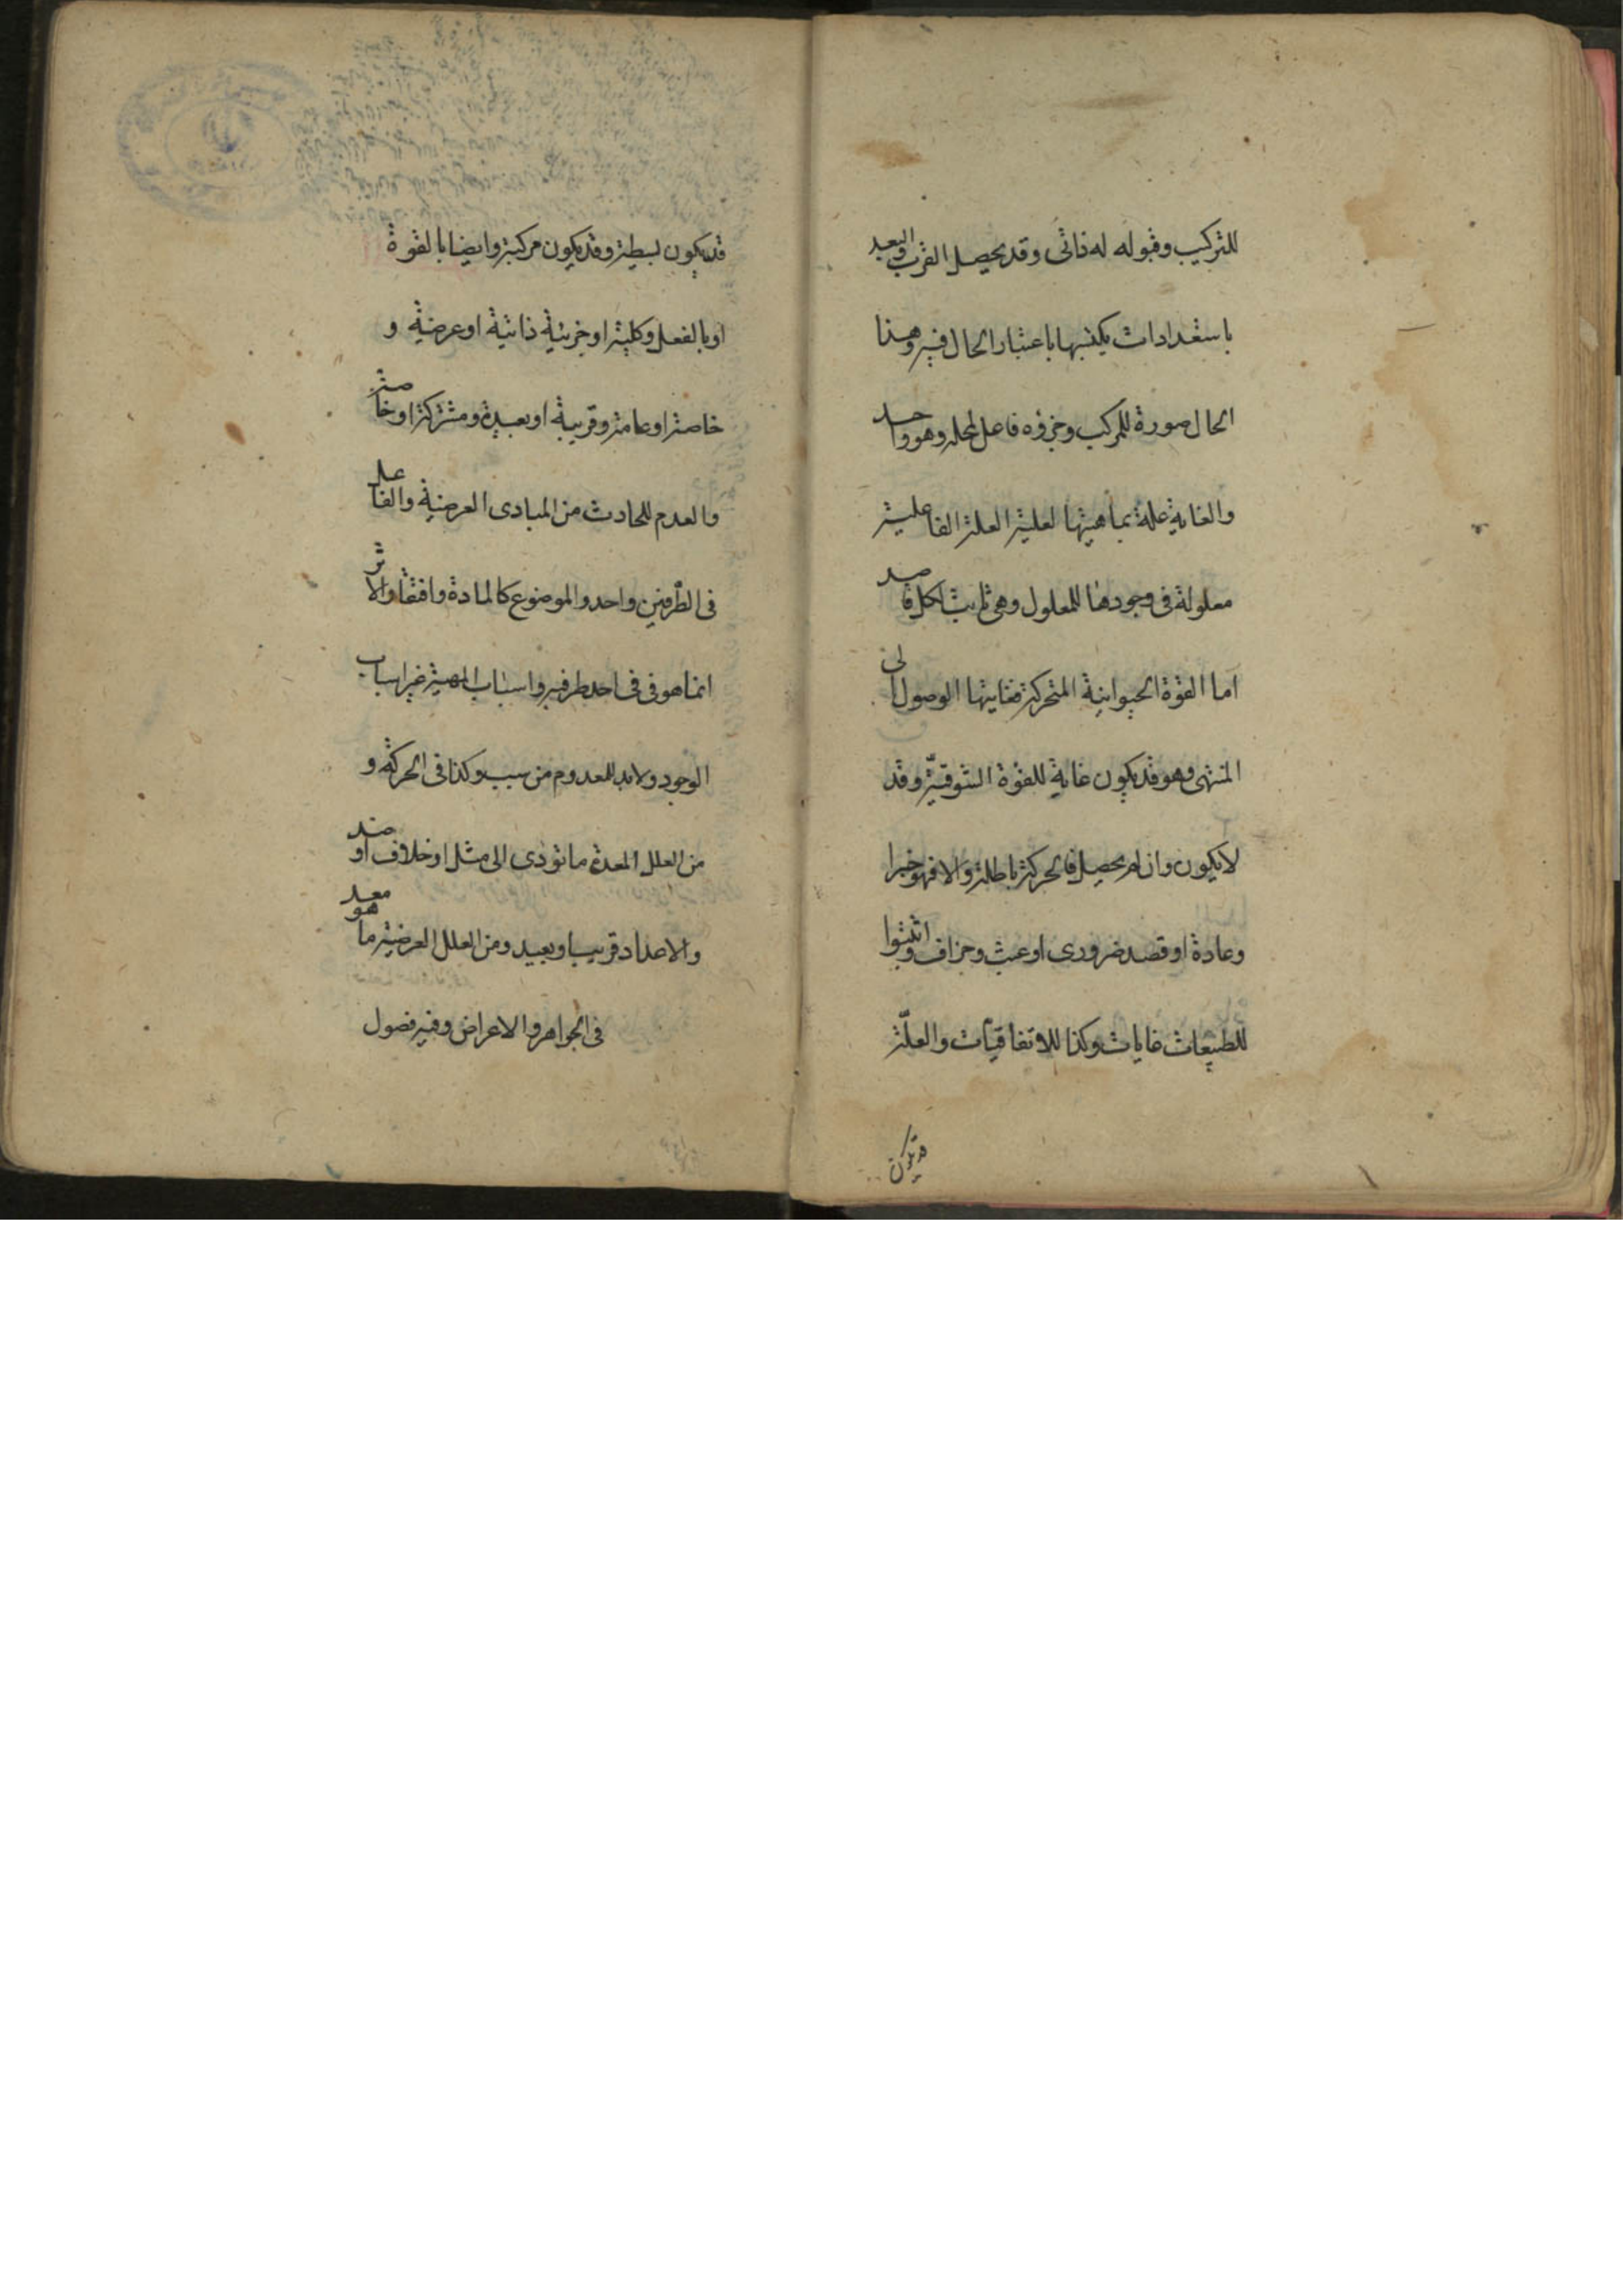 للتركيب وقبوله له ذاتى وقد يحصل القرب والبعد
باستعدادات يكتسبها باعتبار الحال فيه وهذا
الحال صورة للمركب وجزؤه فاعل لمحله وهو واحد
والغاية علة بماهيتها لعلية العلة الفاعلية
معلولة فى وجودها للمعلول وهى ثابتة لكل قاصد
اما القوة الحيوانية المتحركة فغايتها الوصول الى
المنتهى وهو قد يكون غاية للقوة الشوقية وقد
لا يكون وان لم يحصل فالحركة باطلة والا فهو خيرا
وعادة او قصد ضرورى او عبث وجزاف واثبتوا
للطبيعات غايات وكذا للاتفاقيات والعلّة
قد يكون
قد يكون بسيطة وقد يكون مركبة وايضا بالقوة
او بالفعل وكلية او جزئية ذاتية او عرضية و
خاصة او عامة وقريبة او بعيدة ومشتركة او خاصة
والعدم للحادث من المبادى العرضية والفاعل
فى الطرفين واحد والموضوع كالمادة وافتقار الاثر
انما هو فى فى احد طرفيه واسباب المهية غير اسباب
الوجود ولابد للمعدوم من سبب وكذا فى الحركة و
من العلل المعدة ما تؤدى الى مثل او خلاف او ضد
والاعداد قريب او بعيد ومن العلل العرضية ما هو معد
فى الجواهر والاعراض وفيه فصول